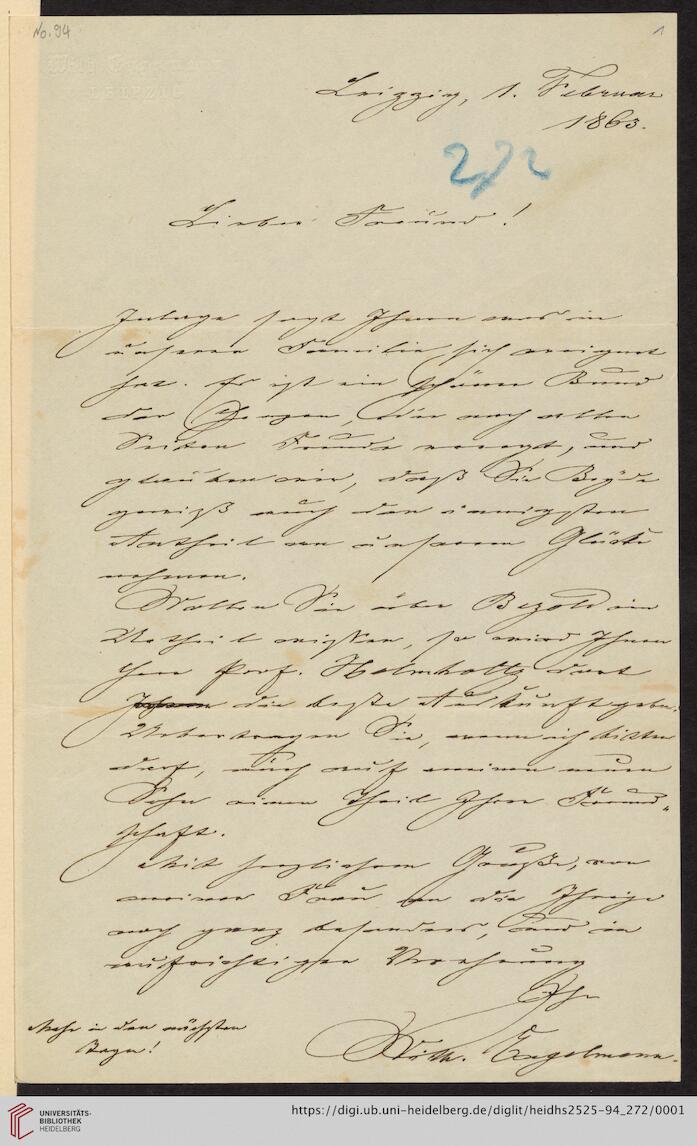 No. 94
1
Wilh. Engelmann
LEIPZIG
Leipzig, 1. Februar
1863.
272
Lieber Freund!
Inlage sagt Ihnen was in
unserer Familie sich ereignet
hat. Es ist ein schöner Bund
der Herzen, der nach allen
Seiten Freude erregt, und
glauben wir, daß Sie Beyde
gewiß auch den innigsten
Antheil an unserem Glücke
nehmen.
Wollen Sie über Bezold ein
Urtheil wissen, so wird Ihnen
Herr Prof. Helmholtz dort
Ihnen die beste Auskunft geben.
Uebertragen Sie, wenn ich bitten
darf, auch auf meinen neuen
Sohn einen Theil Ihrer Freund„
schaft.
Mit herzlichem Gruße, von
meiner Frau an die Ihrige
noch ganz besonders, und in
aufrichtigster Verehrung
Ihr
Wilh. Engelmann.
Mehr in den nächsten
Tagen!
UNIVERSITÄTS-
BIBLIOTHEK
HEIDELBERG
https://digi.ub.uni-heidelberg.de/diglit/heidhs2525-94_272/0001